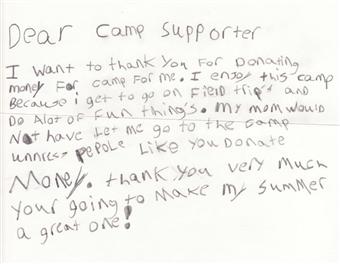 Dear Camp Supporter
I want to thank you For Donating
money For camp For me. I enjoy this camp
Because i get to go on Field trip's and
Do Alot of Fun thing's. my mom would
Not have let me go to the camp
unniess pepole Like you Donate
Money. thank you very much
your going to make my summer
a great one!